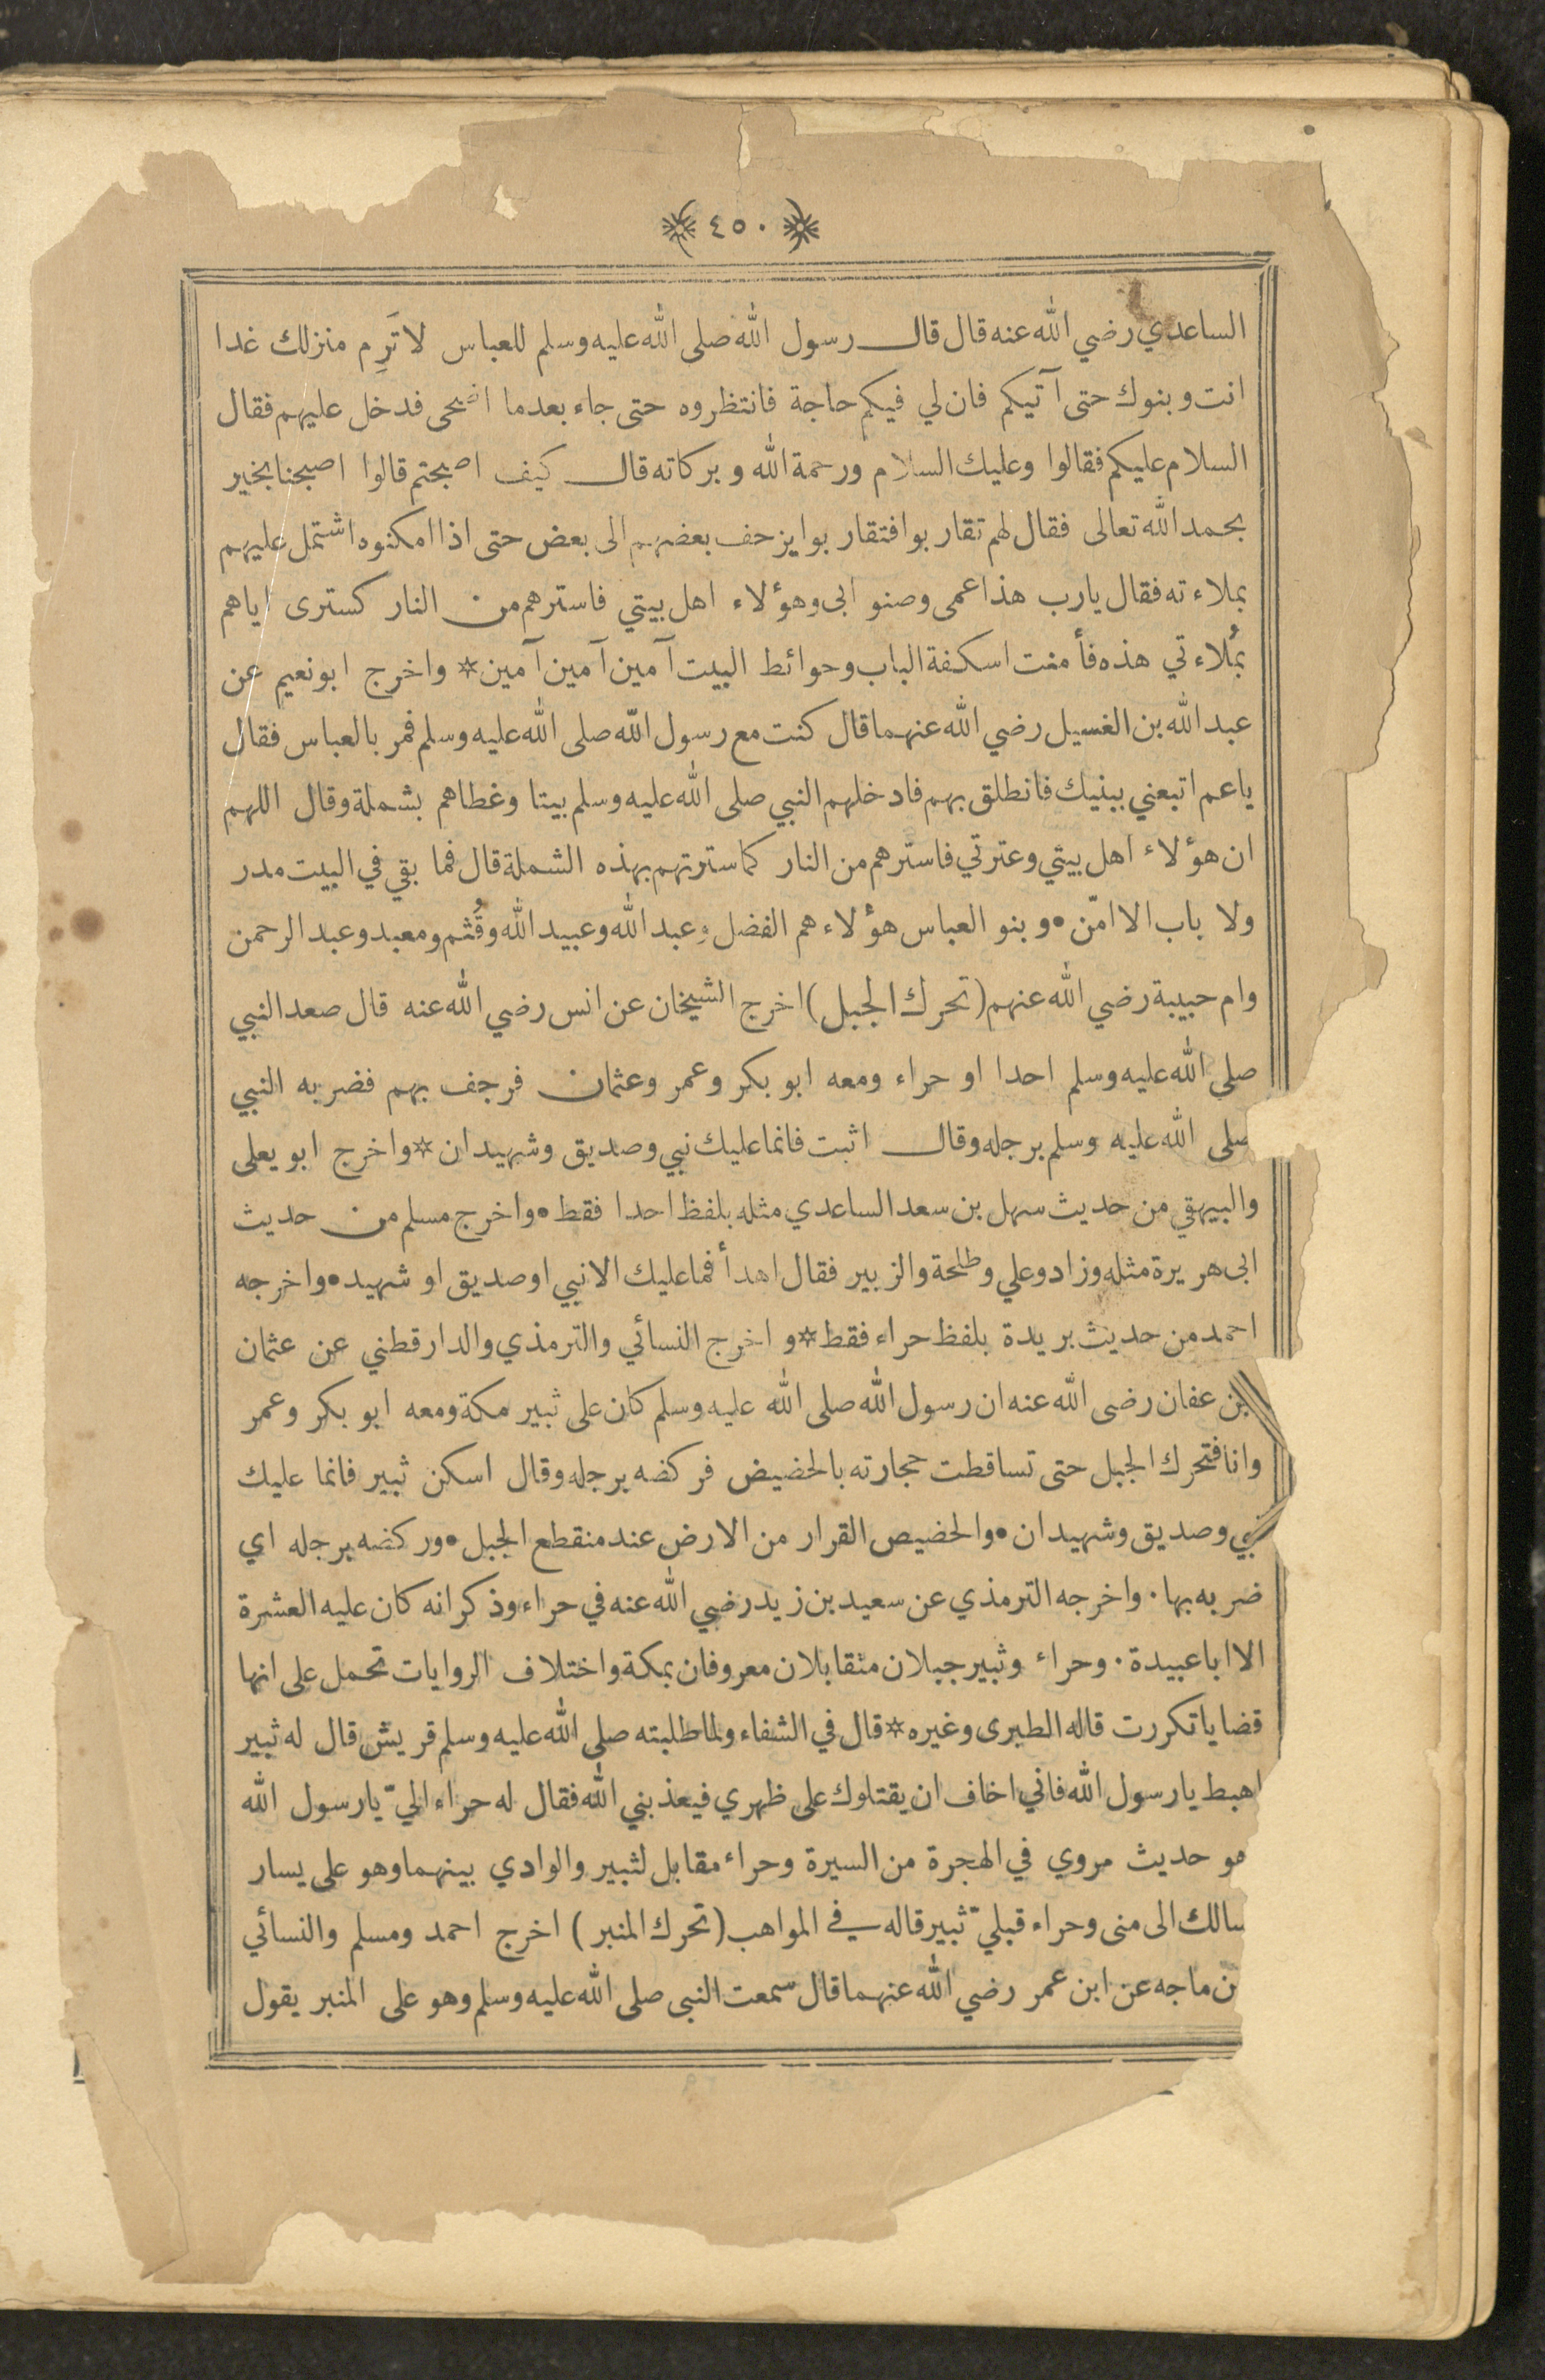 ٤٥٠
الساعدي رضي الله عنه قال قال رسول الله صلى الله عليه وسلم للعباس لا تَرِم منزلك غدا
انت وبنوك حتى آتيكم فان لي فيكم حاجة فانتظروه حتى جاء بعدما اضحى فدخل عليهم فقال
السلام عليكم فقالوا وعليك السلام ورحمة الله وبركاته قال كيف اصبحتم قالوا اصبحنا بخير
بحمد الله تعالى فقال لهم تقاربوا فتقاربوا يزحف بعضهم الى بعض حتى اذا امكنوه اشتمل عليهم
بملاءته فقال يا رب هذا عمى وصنو ابى وهؤلاء اهل بيتي فاسترهم من النار كسترى اياهم
بمُلاءتي هذه فأمنت اسكفة الباب وحوائط البيت آمين آمين آمين * واخرج ابو نعيم عن
عبد الله بن الغسيل رضي الله عنهما قال كنت مع رسول الله صلى الله عليه وسلم فمر بالعباس فقال
يا عم اتبعني ببنيك فانطلق بهم فادخلهم النبي صلى الله عليه وسلم بيتا وغطاهم بشملة وقال اللهم
ان هؤلاء اهل بيتي وعترتي فاسترهم من النار كما سترتهم بهذه الشملة قال فما بقي في البيت مدر
ولا باب الا امّن • وبنو العباس هؤلاء هم الفضل وعبد الله وعبيد الله وقُثم ومعبد وعبد الرحمن
وام حبيبة رضي الله عنهم (تحرك الجبل) اخرج الشيخان عن انس رضي الله عنه قال صعد النبي
صلى الله عليه وسلم احدا او حراء ومعه ابو بكر وعمر وعثمان فرجف بهم فضربه النبي
صلى الله عليه وسلم برجله وقال اثبت فانما عليك نبي وصديق وشهيدان * واخرج ابو يعلى
والبيهقي من حديث سهل بن سعد الساعدي مثله بلفظ احدا فقط • واخرج مسلم من حديث
ابى هريرة مثله وزاد وعلي وطلحة والزبير فقال اهدأ فما عليك الا نبي او صديق او شهيد • واخرجه
احمد من حديث بريدة بلفظ حراء فقط * واخرج النسائي والترمذي والدارقطني عن عثمان
بن عفان رضى الله عنه ان رسول الله صلى الله عليه وسلم كان على ثبير مكة ومعه ابو بكر وعمر
وانا فتحرك الجبل حتى تساقطت حجارته بالحضيض فركضه برجله وقال اسكن ثبير فانما عليك
نبي وصديق وشهيدان • والحضيض القرار من الارض عند منقطع الجبل • وركضه برجله اي
ضربه بها ٠ واخرجه الترمذي عن سعيد بن زيد رضي الله عنه في حراء وذكر انه كان عليه العشرة
الا ابا عبيدة ٠ وحراء وثبير جبلان متقابلان معروفان بمكة واختلاف الروايات تحمل على انها
قضايا تكررت قاله الطبرى وغيره * قال في الشفاء ولما طلبته صلى الله عليه وسلم قريش قال له ثبير
اهبط يا رسول الله فاني اخاف ان يقتلوك على ظهري فيعذبني الله فقال له حراء اليّ يا رسول الله
هو حديث مروي في الهجرة من السيرة وحراء مقابل لثبير والوادي بينهما وهو على يسار
سالك الى منى وحراء قبليّ ثبير قاله في المواهب (تحرك المنبر) اخرج احمد ومسلم والنسائي
بن ماجه عن ابن عمر رضي الله عنهما قال سمعت النبى صلى الله عليه وسلم وهو على المنبر يقول